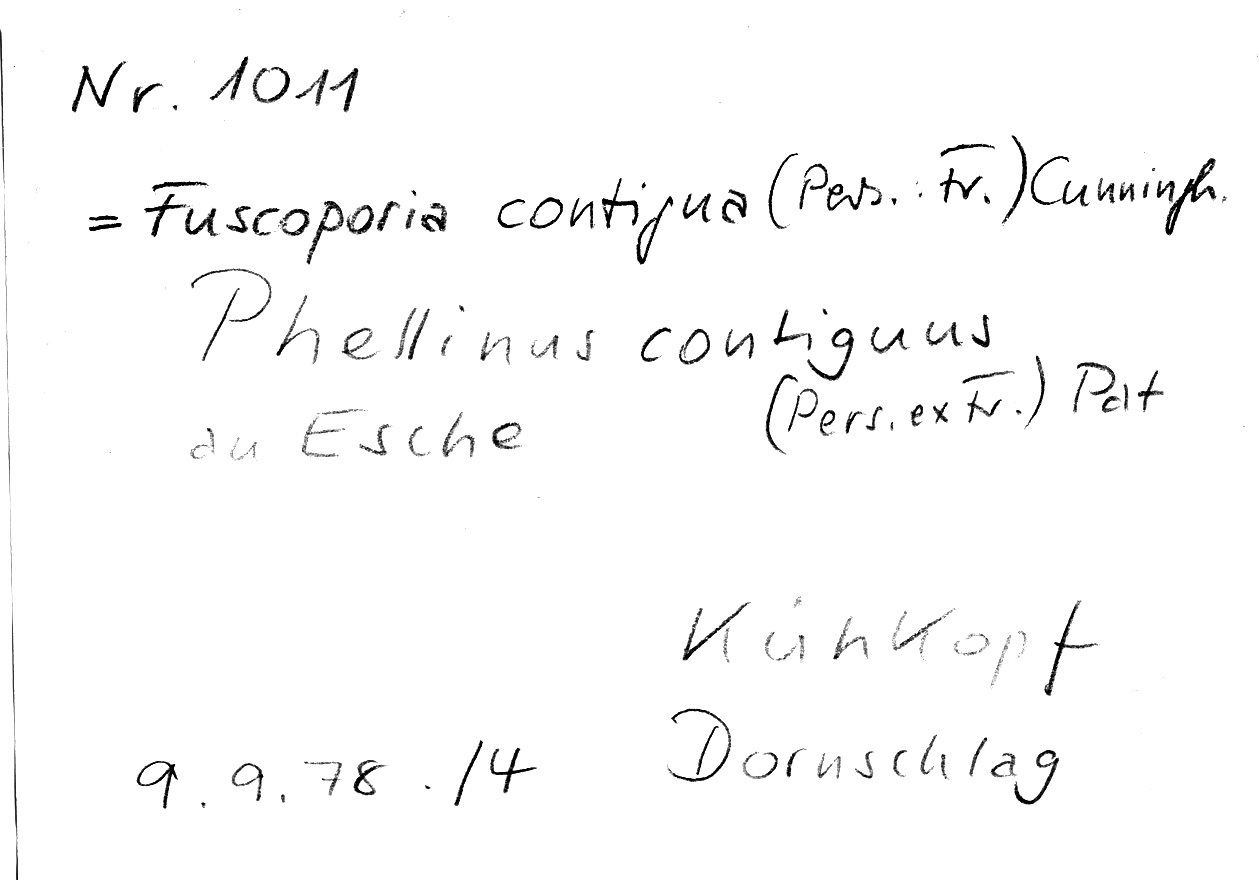 Nr. 1011
= Fuscoporia contigua (Pers. : Fr.) Cunningh.
Phellinus contiguus
(Pers. ex Fr.) Pat
an Esche
Kühkopf
Dornschlag
9.9.78./4